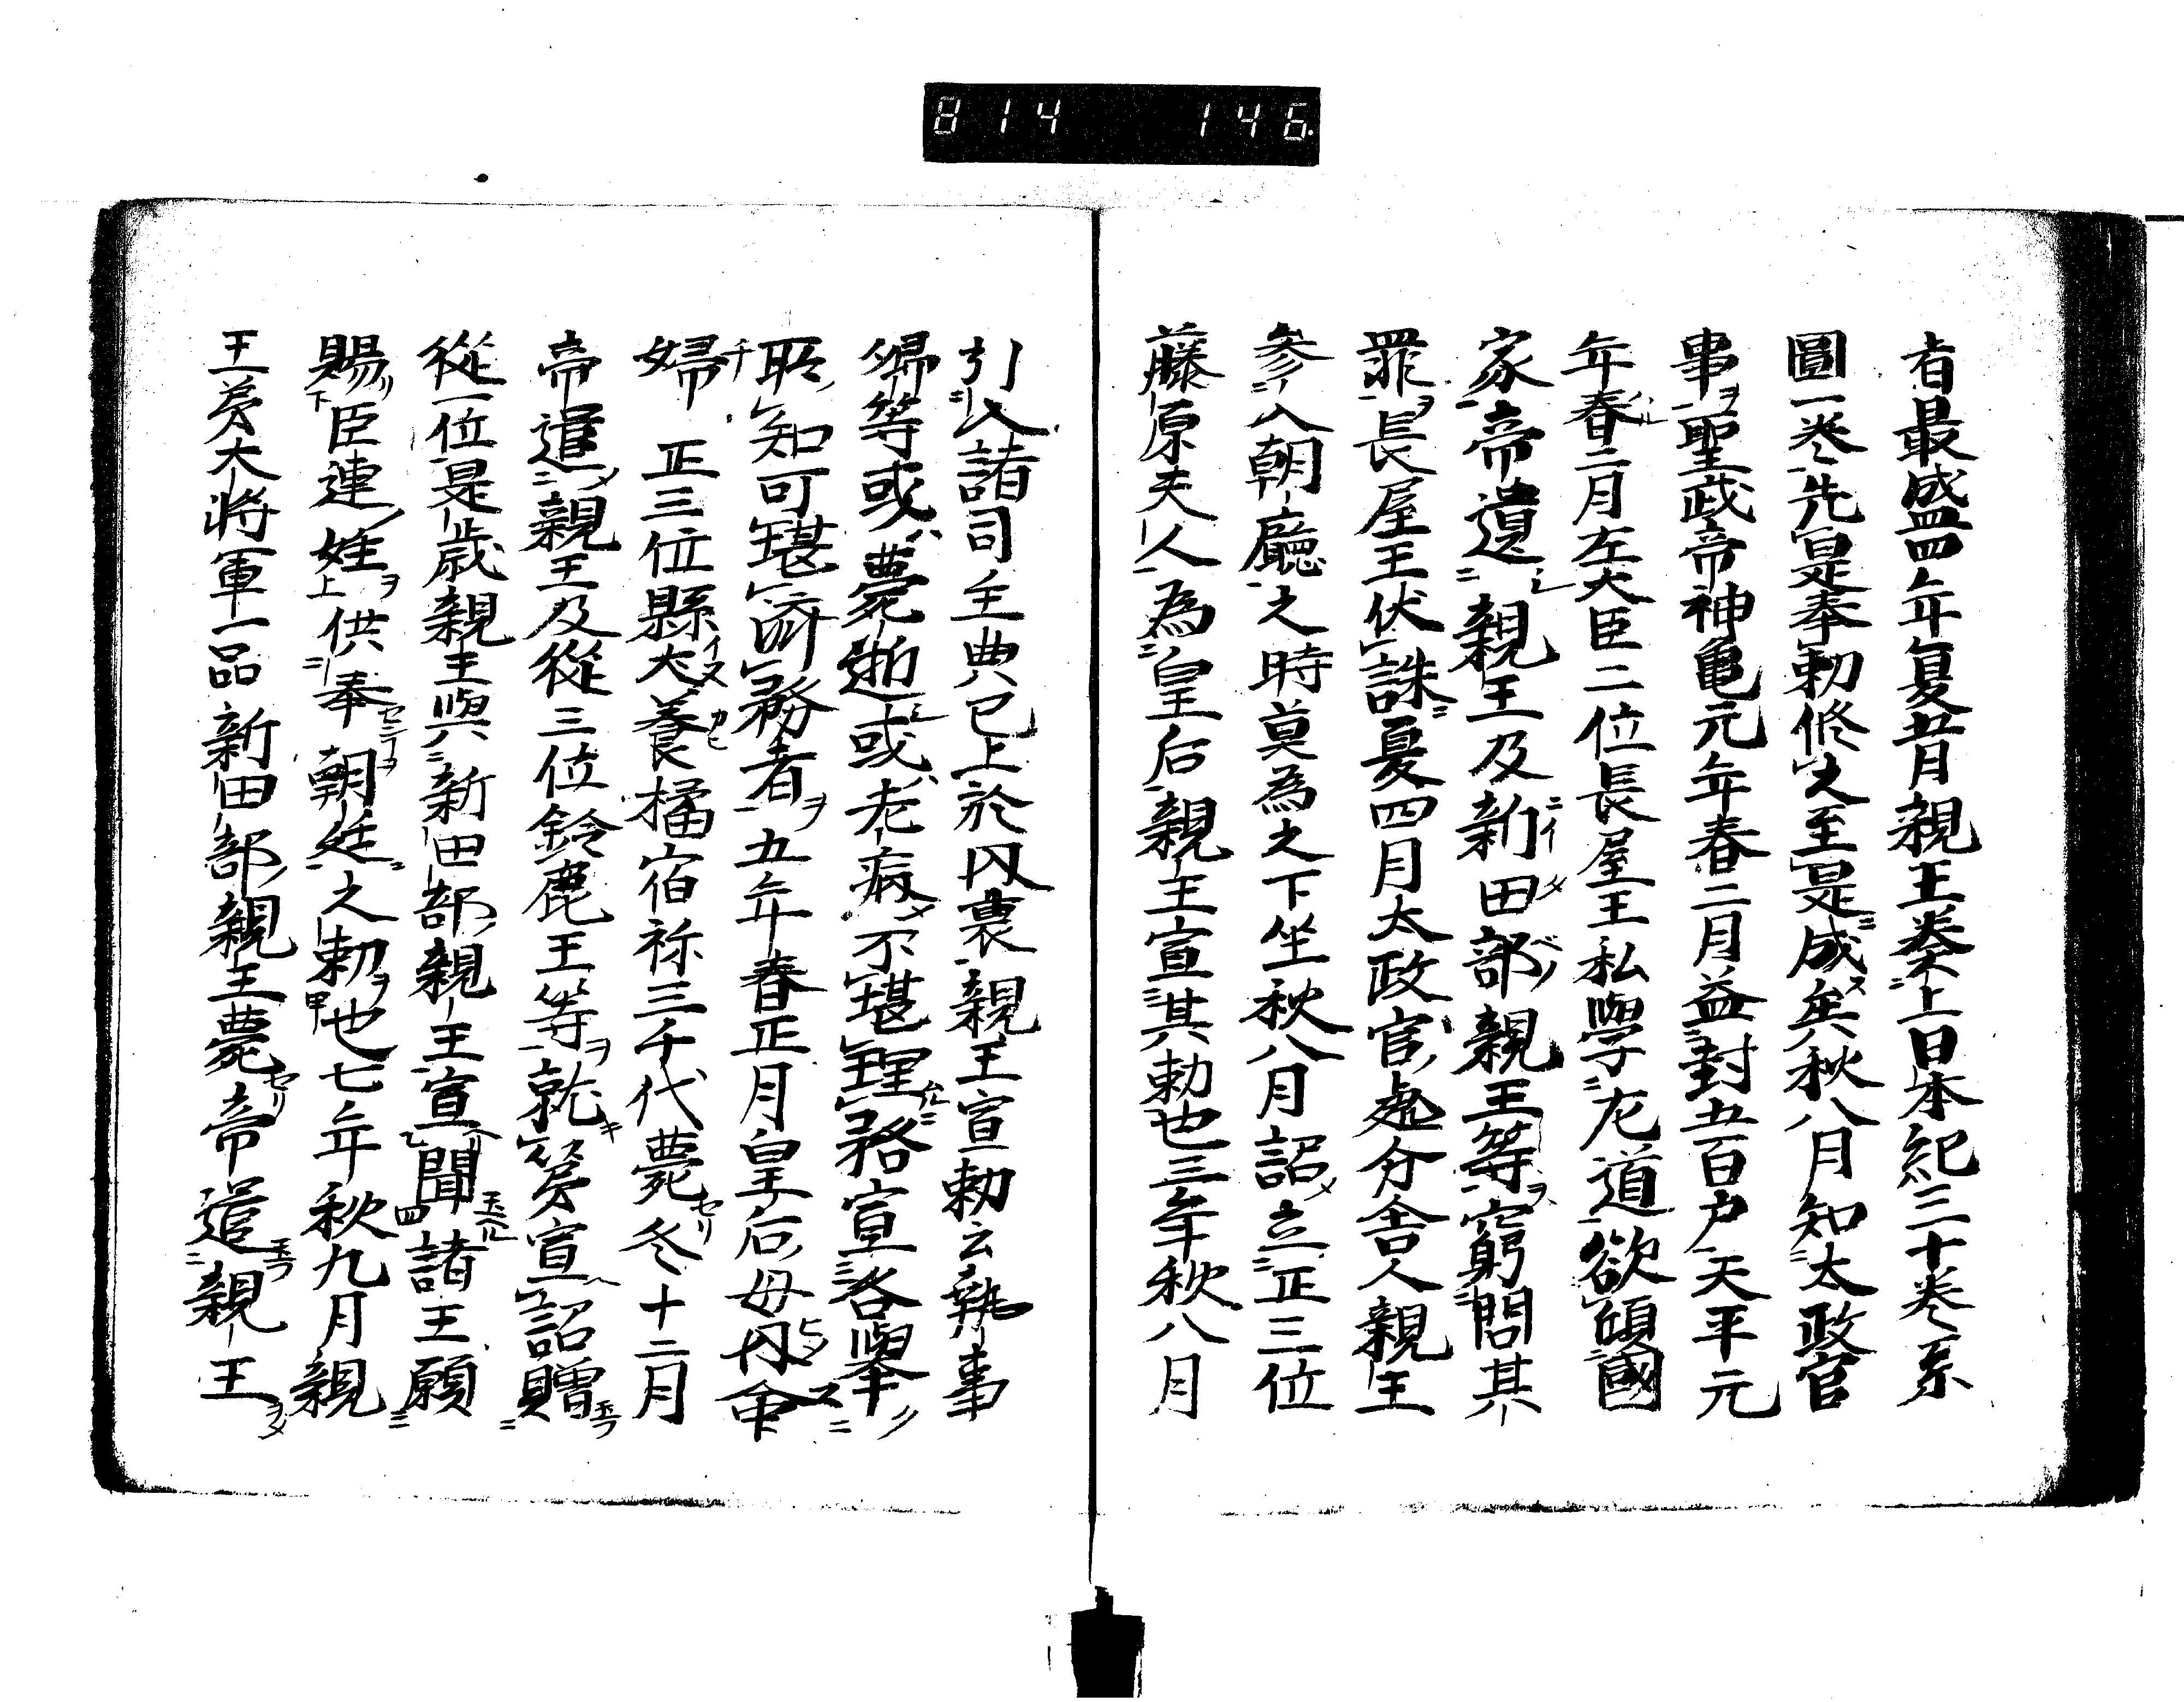 814 146
者最盛四年夏五月親王奏上日本紀三十巻系
圖一巻先是奉勅修之至是成矣秋八月知太政官
事聖武帝神亀元年春二月益封五百戸天平元
年春二月左大臣二位長屋王私學左道欲傾國
家帝遣親王及新田部親王等窮問其
罪長屋王伏誅夏四月太政官處分舎人親王
参入朝廳之時莫為之下坐秋八月詔立正三位
藤原夫人為皇后親王宣其勅也三年秋八月
引入諸司主典已上於内裏親王宣勅云執事
卿等或薨逝或老病不堪理務宣各舉
聡知可堪済務者五年春正月皇后母内命
婦正三位縣犬養橘宿祢三千代薨冬十二月
帝遣親王及從三位鈴鹿王等就第宣詔贈
從一位是歳親王與新田部親王宣聞諸王願
賜臣連姓供奉朝廷之勅也七年秋九月親
王薨大将軍一品新田部親王薨帝遣親王